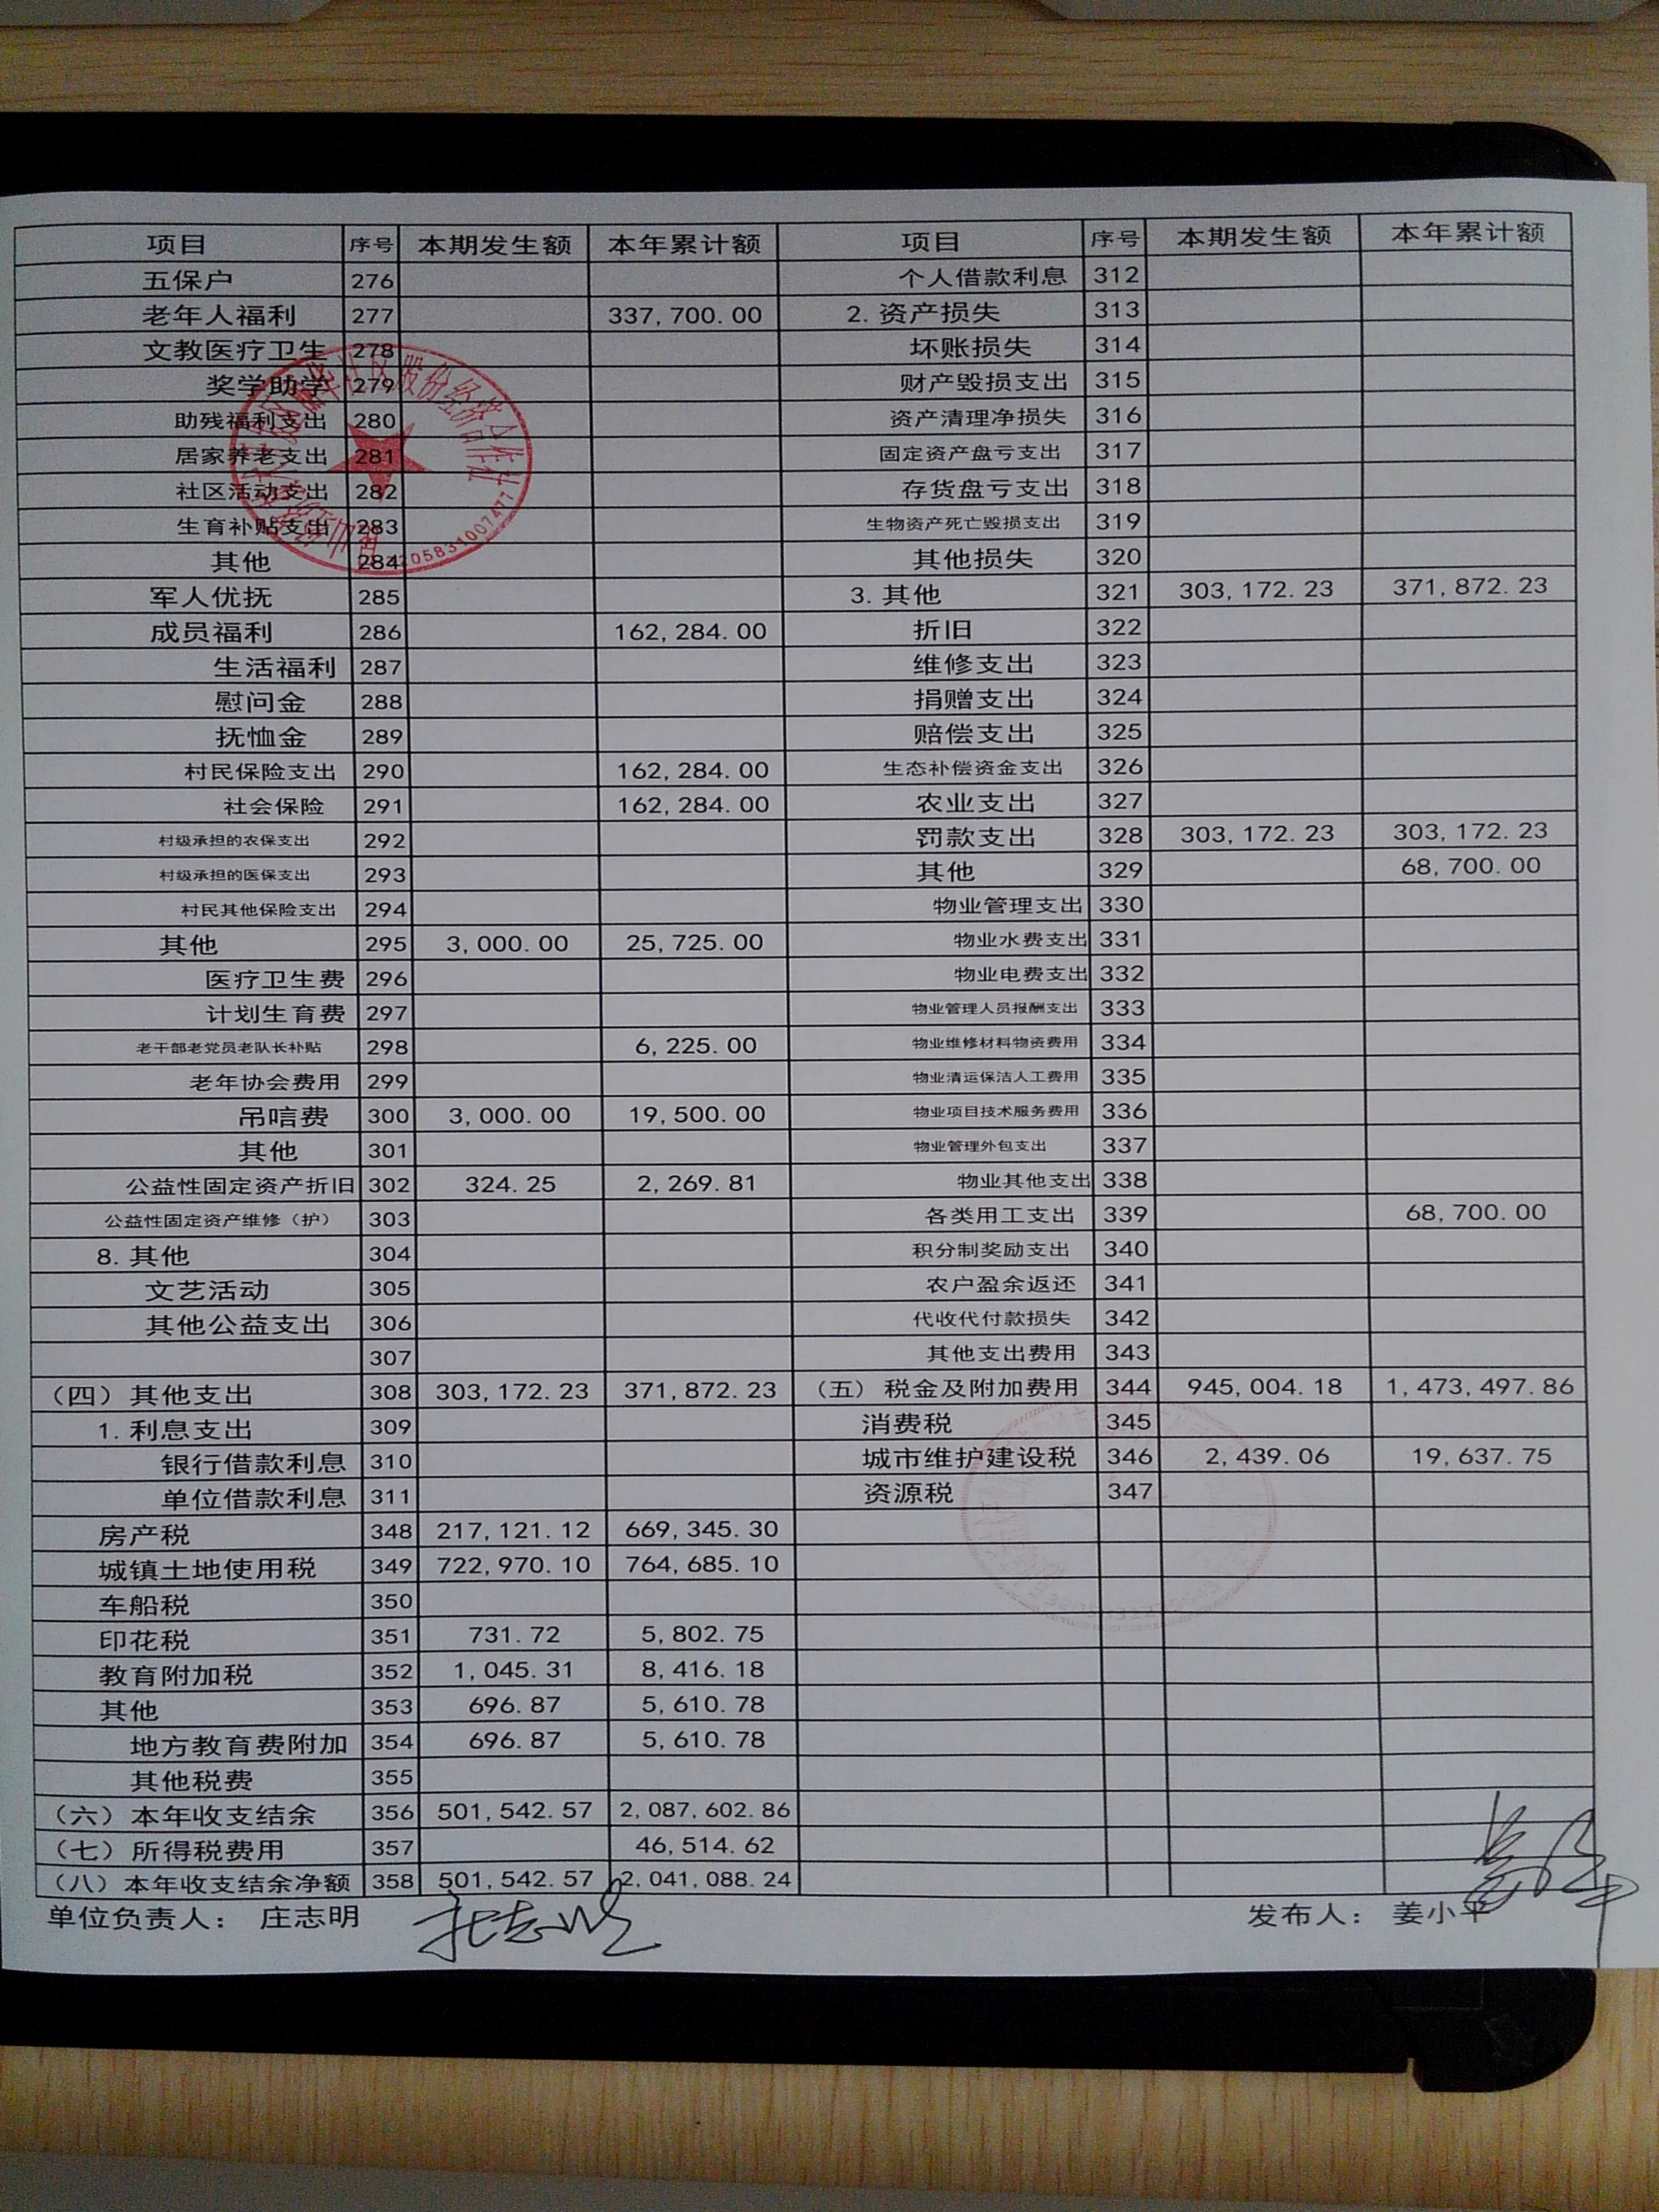 项目 序号 本期发生额 本年累计额 项目 序号 本期发生额 本年累计额
五保户 276 个人借款利息 312
老年人福利 277 337,700.00 2. 资产损失 313
文教医疗卫生 278 坏账损失 314
奖学助学 279 财产毁损支出 315
助残福利支出 280 资产清理净损失 316
居家养老支出 281 固定资产盘亏支出 317
社区活动支出 282 存货盘亏支出 318
生育补贴支出 283 生物资产死亡毁损支出 319
其他 284 其他损失 320
军人优抚 285 3. 其他 321 303,172.23 371,872.23
成员福利 286 162,284.00 折旧 322
生活福利 287 维修支出 323
慰问金 288 捐赠支出 324
抚恤金 289 赔偿支出 325
村民保险支出 290 162,284.00 生态补偿资金支出 326
社会保险 291 162,284.00 农业支出 327
村级承担的农保支出 292 罚款支出 328 303,172.23 303,172.23
村级承担的医保支出 293 其他 329 68,700.00
村民其他保险支出 294 物业管理支出 330
其他 295 3,000.00 25,725.00 物业水费支出 331
医疗卫生费 296 物业电费支出 332
计划生育费 297 物业管理人员报酬支出 333
老干部老党员老队长补贴 298 6,225.00 物业维修材料物资费用 334
老年协会费用 299 物业清运保洁人工费用 335
吊唁费 300 3,000.00 19,500.00 物业项目技术服务费用 336
其他 301 物业管理外包支出 337
公益性固定资产折旧 302 324.25 2,269.81 物业其他支出 338
公益性固定资产维修（护） 303 各类用工支出 339 68,700.00
8. 其他 304 积分制奖励支出 340
文艺活动 305 农户盈余返还 341
其他公益支出 306 代收代付款损失 342
307 其他支出费用 343
（四）其他支出 308 303,172.23 371,872.23 （五）税金及附加费用 344 945,004.18 1,473,497.86
1. 利息支出 309 消费税 345
银行借款利息 310 城市维护建设税 346 2,439.06 19,637.75
单位借款利息 311 资源税 347
房产税 348 217,121.12 669,345.30
城镇土地使用税 349 722,970.10 764,685.10
车船税 350
印花税 351 731.72 5,802.75
教育附加税 352 1,045.31 8,416.18
其他 353 696.87 5,610.78
地方教育费附加 354 696.87 5,610.78
其他税费 355
（六）本年收支结余 356 501,542.57 2,087,602.86
（七）所得税费用 357 46,514.62
（八）本年收支结余净额 358 501,542.57 2,041,088.24
单位负责人： 庄志明 发布人： 姜小平
社区股份经济合作社